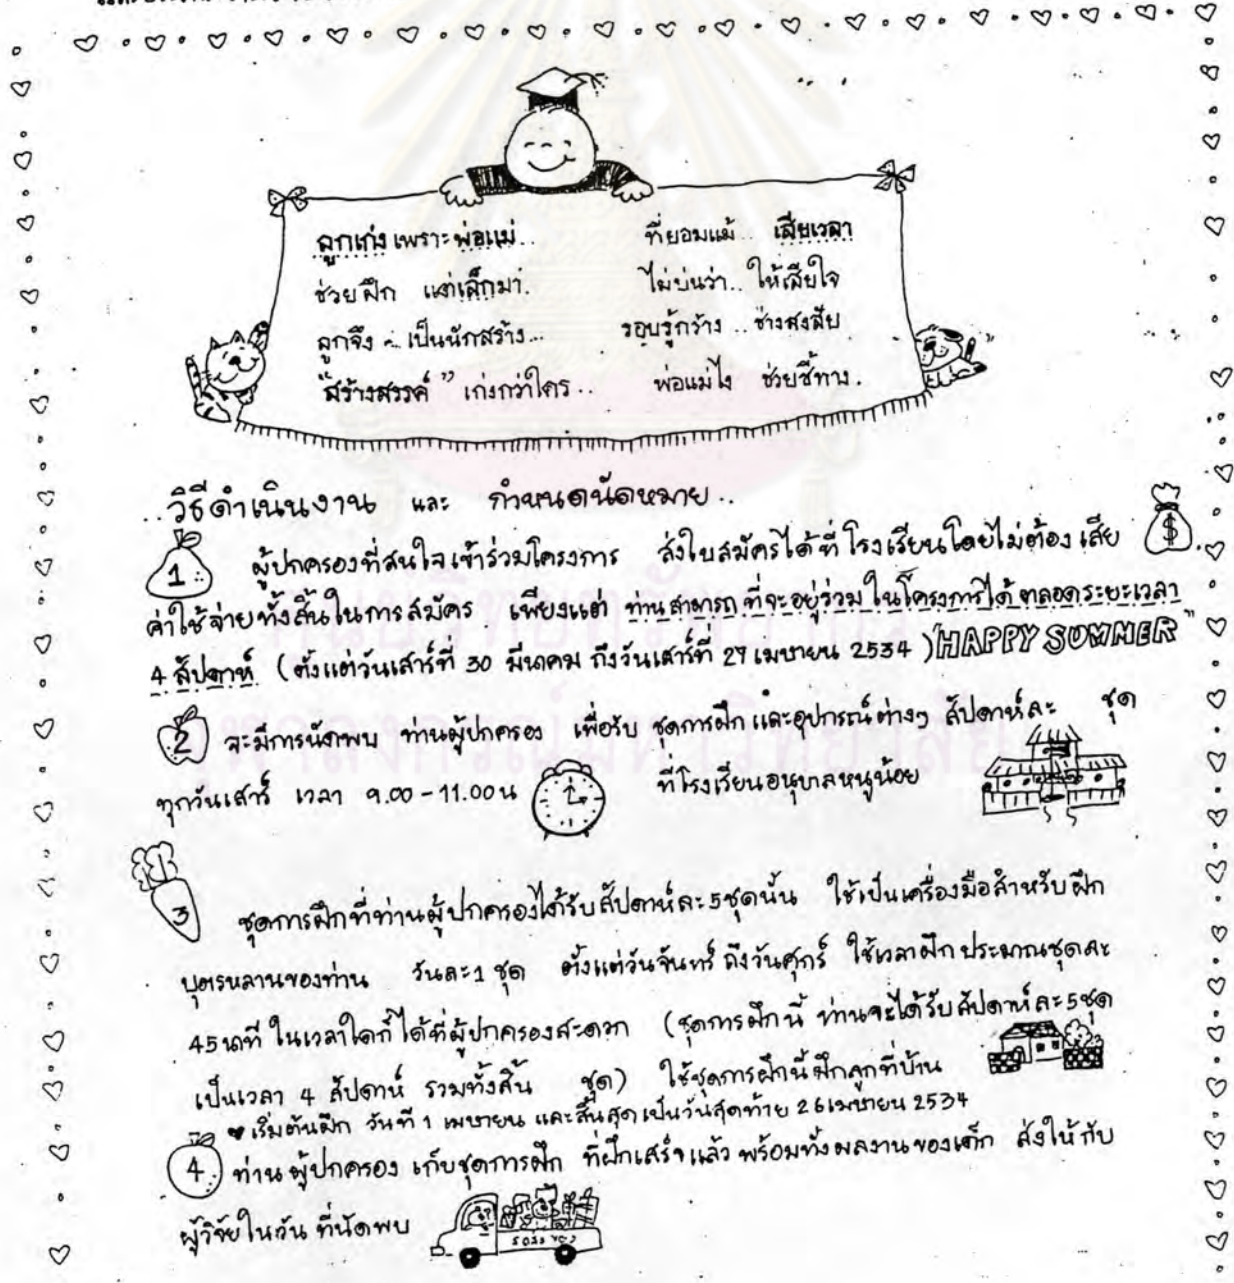 ลูกเก่ง เพราะพ่อแม่.. ที่ยอมแม้.. เสียเวลา
ช่วยฝึก แต่เล็กมา. ไม่บ่นว่า.. ให้เสียใจ
ลูกจึง เป็นนักสร้าง... รอบรู้กว้าง .. ช่างสงสัย
"สร้างสรรค์" เก่งกว่าใคร.. พ่อแม่ไง ช่วยชี้ทาง.
..วิธีดำเนินงาน และ กำหนดนัดหมาย..
1 ผู้ปกครองที่สนใจเข้าร่วมโครงการ ส่งใบสมัครได้ที่โรงเรียนโดยไม่ต้องเสีย $
ค่าใช้จ่ายทั้งสิ้นในการสมัคร เพียงแต่ ท่านสามารถที่จะอยู่ร่วมในโครงการได้ตลอดระยะเวลา
4 สัปดาห์ (ตั้งแต่วันเสาร์ที่ 30 มีนาคม ถึงวันเสาร์ที่ 27 เมษายน 2534) "HAPPY SUMMER"
2 จะมีการนัดพบ ท่านผู้ปกครอง เพื่อรับ ชุดการฝึก และอุปกรณ์ต่างๆ สัปดาห์ละ ชุด
ทุกวันเสาร์ เวลา 9.00-11.00 น ที่โรงเรียนอนุบาลหนูน้อย
3 ชุดการฝึกที่ท่านผู้ปกครองได้รับสัปดาห์ละ 5 ชุดนั้น ใช้เป็นเครื่องมือสำหรับฝึก
บุตรหลานของท่าน วันละ 1 ชุด ตั้งแต่วันจันทร์ ถึงวันศุกร์ ใช้เวลาฝึกประมาณชุดละ
45 นาที ในเวลาใดก็ได้ที่ผู้ปกครองสะดวก (ชุดการฝึกนี้ ท่านจะได้รับสัปดาห์ละ 5 ชุด
เป็นเวลา 4 สัปดาห์ รวมทั้งสิ้น ชุด) ใช้ชุดการฝึกนี้ฝึกลูกที่บ้าน
เริ่มต้นฝึก วันที่ 1 เมษายน และสิ้นสุดเป็นวันสุดท้าย 26 เมษายน 2534
4 ท่านผู้ปกครอง เก็บชุดการฝึก ที่ฝึกเสร็จแล้ว พร้อมทั้งผลงานของเด็ก ส่งให้กับ
ผู้วิจัยในวัน ที่นัดพบ
ศูนย์วิทยทรัพยากร
จุฬาลงกรณ์มหาวิทยาลัย